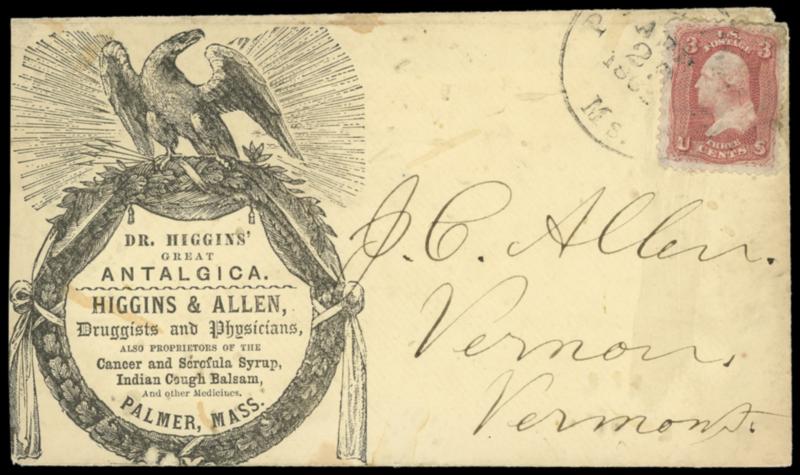 DR. HIGGINS'
GREAT
ANTALGICA.
HIGGINS & ALLEN,
Druggists and Physicians,
ALSO PROPRIETORS OF THE
Cancer and Scrofula Syrup,
Indian Cough Balsam,
And other Medicines.
PALMER, MASS.
Ms.
U.S.
POSTAGE
3 3
U THREE S
CENTS
J. C. Allen.
Vernon,
Vermont.